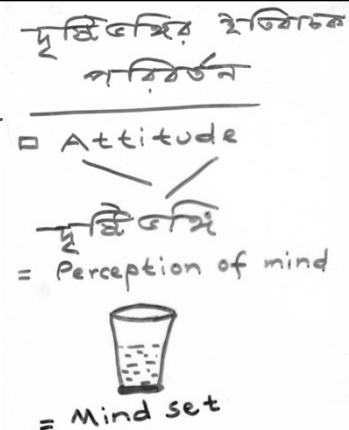 দৃষ্টিভঙ্গির ইতিবাচক
পরিবর্তন
Attitude
দৃষ্টিভঙ্গি
= Perception of mind
= Mind set